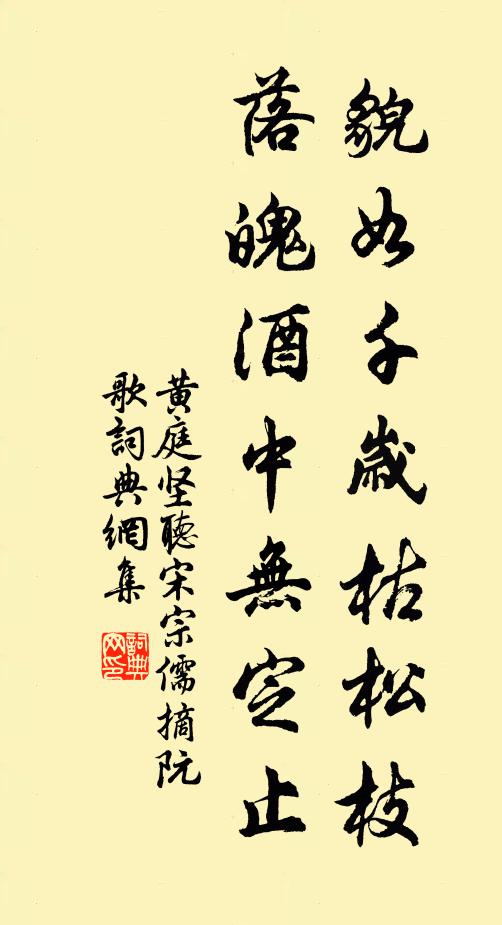 貌如千歲枯松枝
落魄酒中無定止
黄庭坚聽宋宗儒摘阮
歌詞典網集
詞典网印